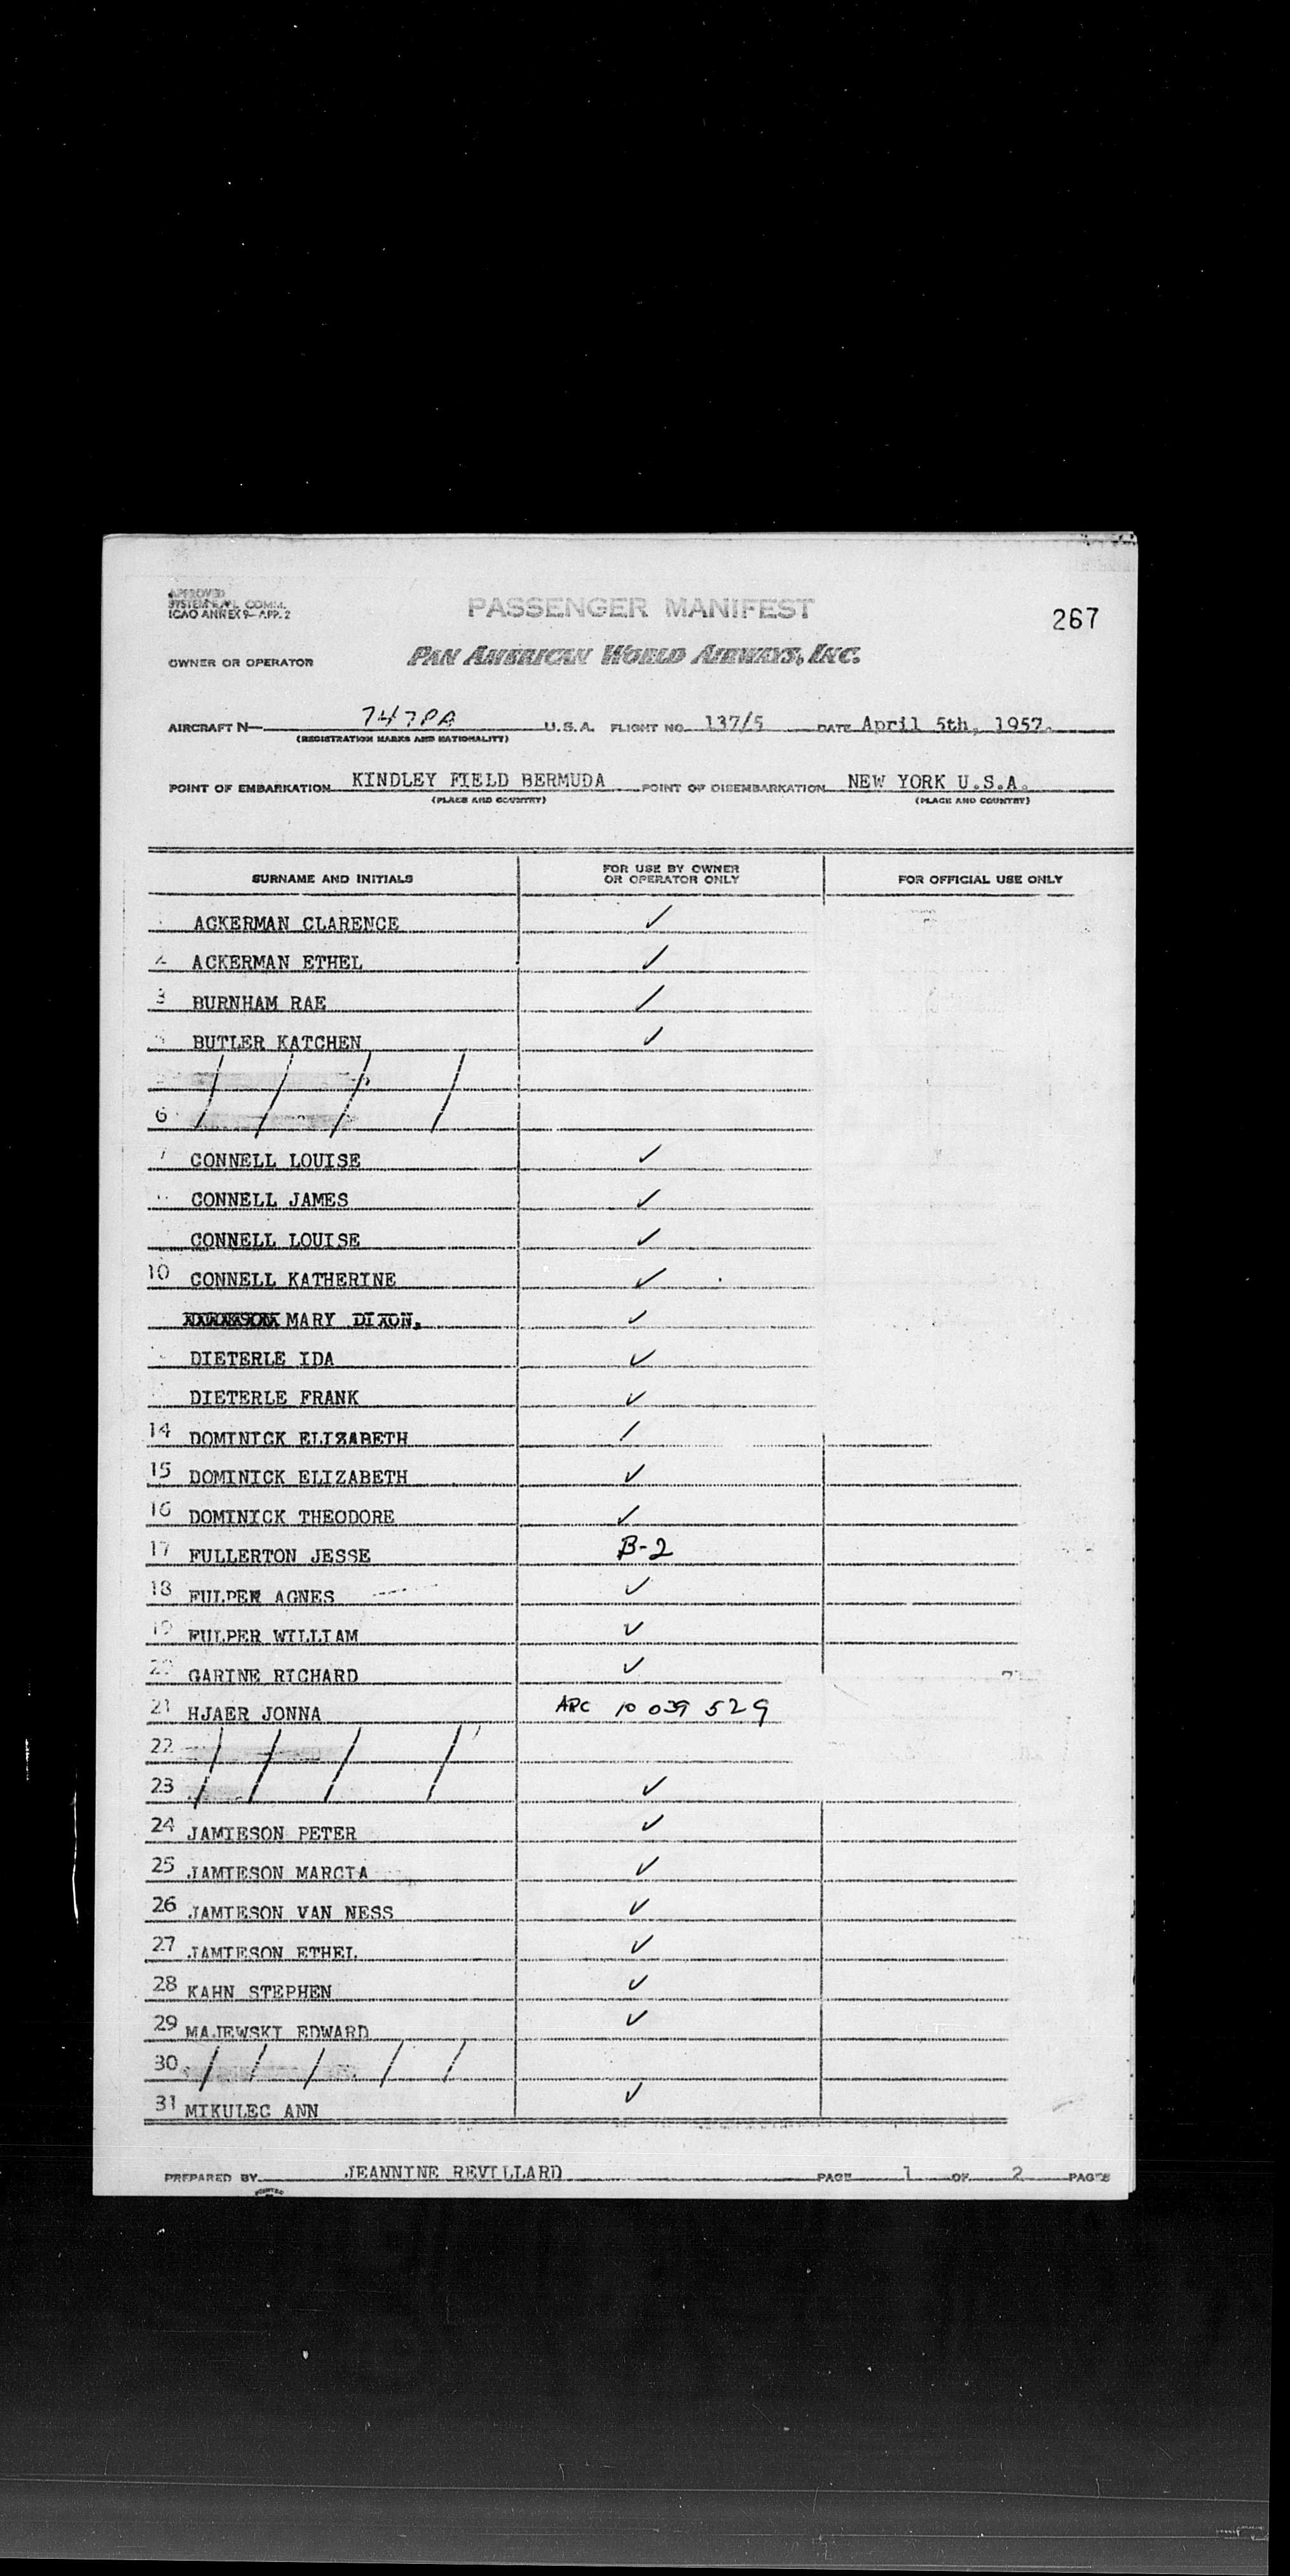 APPROVED
SYSTEM COMM.
ICAO ANNEX 9—APP. 2
PASSENGER MANIFEST
267
OWNER OR OPERATOR PAN AMERICAN WORLD AIRWAYS, INC.
AIRCRAFT N— 747PA U.S.A. FLIGHT NO. 137/5 DATE April 5th, 1957.
(REGISTRATION MARKS AND NATIONALITY)
POINT OF EMBARKATION KINDLEY FIELD BERMUDA POINT OF DISEMBARKATION NEW YORK U.S.A.
(PLACE AND COUNTRY) (PLACE AND COUNTRY)
SURNAME AND INITIALS FOR USE BY OWNER OR OPERATOR ONLY FOR OFFICIAL USE ONLY
ACKERMAN CLARENCE ✓
2 ACKERMAN ETHEL ✓
3 BURNHAM RAE ✓
BUTLER KATCHEN ✓
6
7 CONNELL LOUISE ✓
CONNELL JAMES ✓
CONNELL LOUISE ✓
10 CONNELL KATHERINE ✓
MARY DIXON, ✓
DIETERLE IDA ✓
DIETERLE FRANK ✓
14 DOMINICK ELIZABETH ✓
15 DOMINICK ELIZABETH ✓
16 DOMINICK THEODORE ✓
17 FULLERTON JESSE B-2
18 FULPER AGNES ✓
19 FULPER WILLIAM ✓
20 GARINE RICHARD ✓
21 HJAER JONNA ARC 10 039 529
22
23 ✓
24 JAMIESON PETER ✓
25 JAMIESON MARCIA ✓
26 JAMIESON VAN NESS ✓
27 JAMIESON ETHEL ✓
28 KAHN STEPHEN ✓
29 MAJEWSKI EDWARD ✓
30
31 MIKULEC ANN ✓
PREPARED BY JEANNINE REVILLARD PAGE 1 OF 2 PAGES